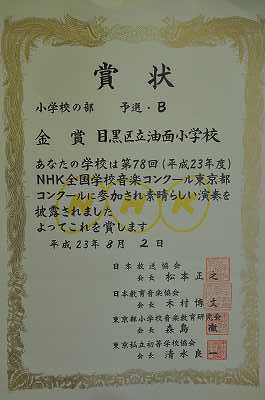 賞状
小学校の部 予選・B
金賞 目黒区立油面小学校
あなたの学校は第78回(平成23年度)
NHK全国学校音楽コンクール東京都
コンクールに参加され素晴らしい演奏を
披露されました
よってこれを賞します
平成23年8月2日
日本放送協会
会長 松本正之
日本教育音楽協会
会長 木村博文
東京都小学校音楽教育研究会
会長 森島徹
東京私立初等学校協会
会長 清水良一
NHK